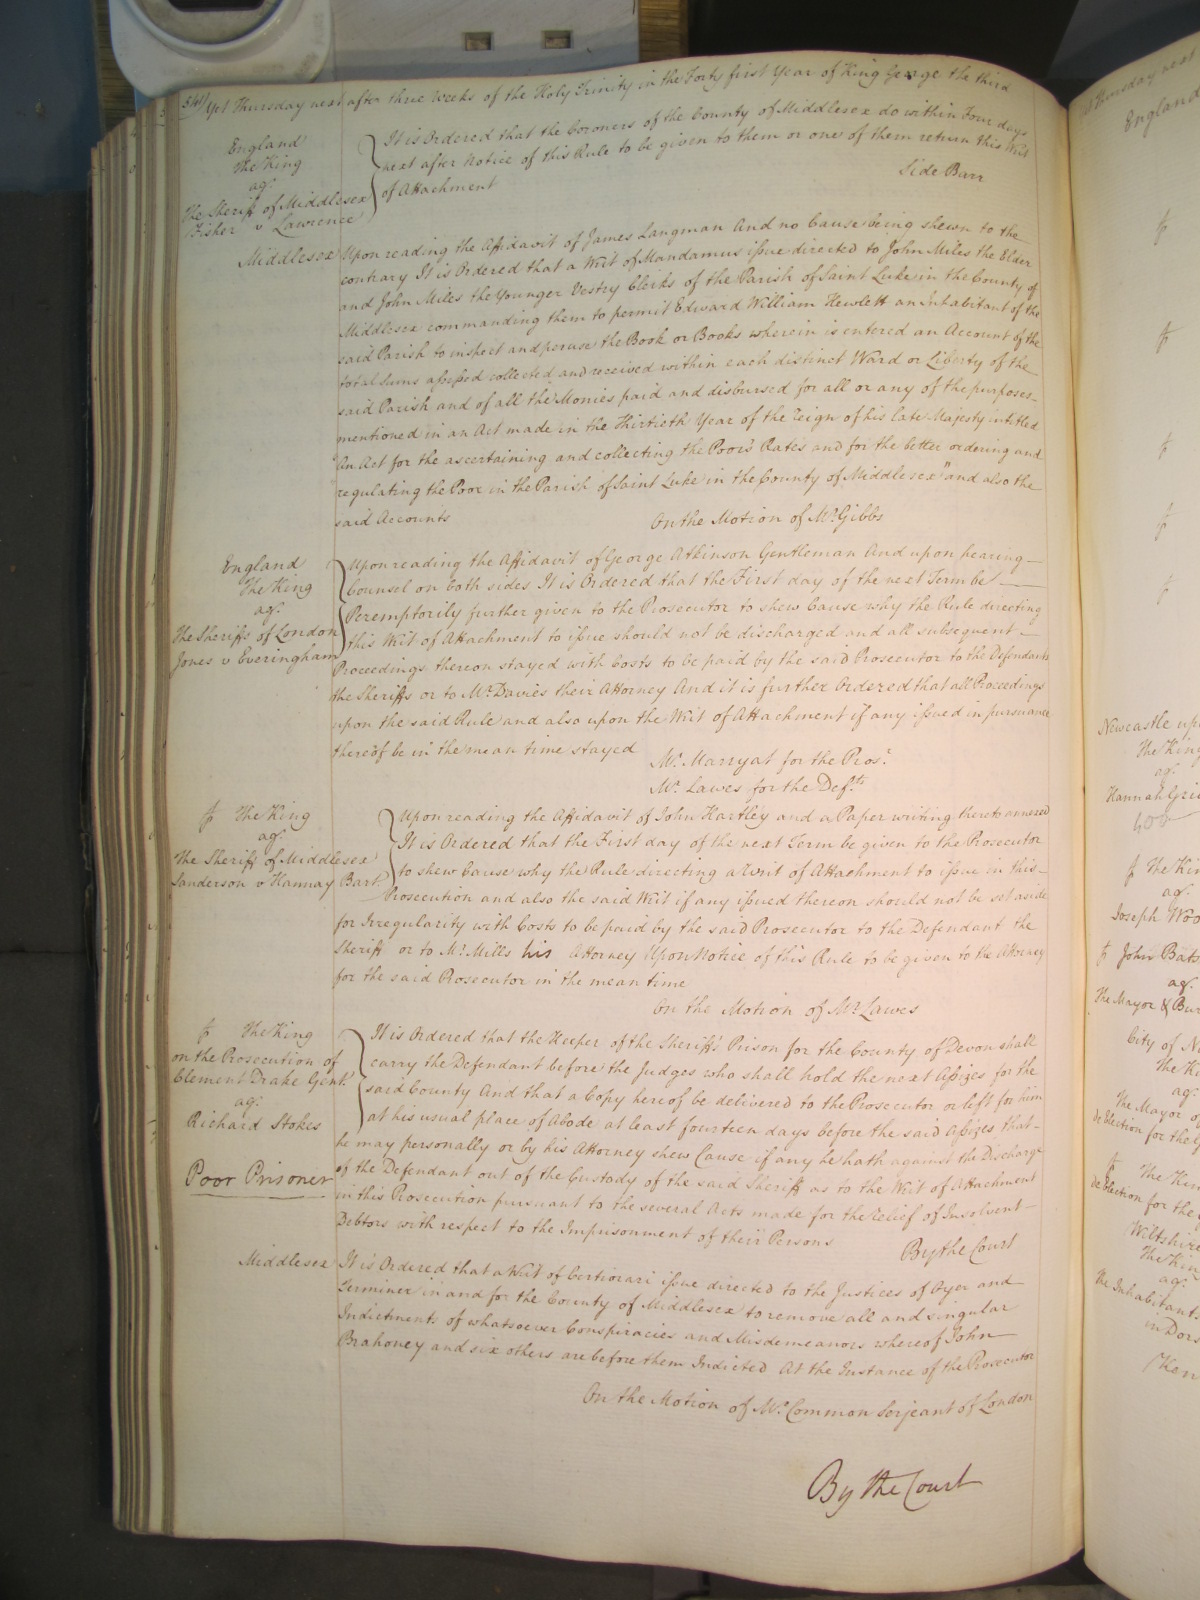 Yet Thursday next after three weeks of the Holy Trinity in the Forty first Year of King George the third
England
The King
agt.
The Sheriff of Middlesex
Fisher v Lawrence
It is Ordered that the Coroners of the County of Middlesex do within Four days
next after Notice of this Rule to be given to them or one of them return this Writ
of Attachment
Side Barr
Middlesex Upon reading the Affidavit of James Langman And no Cause being shewn to the
contrary It is Ordered that a Writ of Mandamus issue directed to John Miles the Elder
and John Miles the Younger Vestry Clerks of the Parish of Saint Luke in the County of
Middlesex commanding them to permit Edward William Hewlett an Inhabitant of the
said Parish to inspect and peruse the Book or Books wherein is entered an Account of the
total sums assessed collected and received within each distinct Ward or Liberty of the
said Parish and of all the Monies paid and disbursed for all or any of the purposes
mentioned in an Act made in the Thirtieth Year of the reign of his late Majesty intitled
"An Act for the ascertaining and collecting the Poor's Rates and for the better ordering and
regulating the Poor in the Parish of Saint Luke in the County of Middlesex" and also the
said Accounts
On the Motion of Mr. Gibbs
England
The King
agt.
The Sheriffs of London
Jones v Everingham
Upon reading the Affidavit of George Atkinson Gentleman And upon hearing
Counsel on both sides It is Ordered that the First day of the next Term be
Peremptorily further given to the Prosecutor to shew Cause why the Rule directing
this Writ of Attachment to issue should not be discharged and all subsequent
Proceedings thereon stayed with Costs to be paid by the said Prosecutor to the Defendants
the Sheriffs or to Mr. Davies their Attorney And it is further Ordered that all Proceedings
upon the said Rule and also upon the Writ of Attachment if any issued in pursuance
thereof be in the mean time stayed
Mr. Marryat for the Pros.r
Mr. Lawes for the Def.ts
The King
agt.
The Sheriff of Middlesex
Sanderson v Hannay Bart.
Upon reading the Affidavit of John Hartley and a Paper writing thereto annexed
It is Ordered that the First day of the next Term be given to the Prosecutor
to shew Cause why the Rule directing a Writ of Attachment to issue in this
Prosecution and also the said Writ if any issued thereon should not be set aside
for Irregularity with Costs to be paid by the said Prosecutor to the Defendant the
Sheriff or to Mr. Mills his Attorney Upon Notice of this Rule to be given to the Attorney
for the said Prosecutor in the mean time
On the Motion of Mr. Lawes
The King
on the Prosecution of
Clement Drake Gent.
agt.
Richard Stokes
Poor Prisoner
It is Ordered that the Keeper of the Sheriff's Prison for the County of Devon shall
carry the Defendant before the Judges who shall hold the next Assizes for the
said County And that a Copy hereof be delivered to the Prosecutor or left for him
at his usual place of Abode at least fourteen days before the said Assizes that
he may personally or by his Attorney shew Cause if any he hath against the Discharge
of the Defendant out of the Custody of the said Sheriff as to the Writ of Attachment
in this Prosecution pursuant to the several Acts made for the relief of Insolvent
Debtors with respect to the Imprisonment of their Persons
By the Court
Middlesex It is Ordered that a Writ of Certiorari issue directed to the Justices of Oyer and
Terminer in and for the County of Middlesex to remove all and singular
Indictments of whatsoever Conspiracies and Misdemeanors whereof John
Brahoney and six others are before them Indicted At the Instance of the Prosecutor
On the Motion of Mr. Common Serjeant of London
By the Court
Thursday next
England
Newcastle upo
The King
agt.
Hannah Gri
The Kin
agt.
Joseph Woo
John Bats
agt.
The Mayor & Bur
City of N
The Ki
agt.
The Mayor o
de Election for the
The Kin
de Election for the
Wiltshire
The Kin
agt.
The Inhabitant
in Dors
Ken